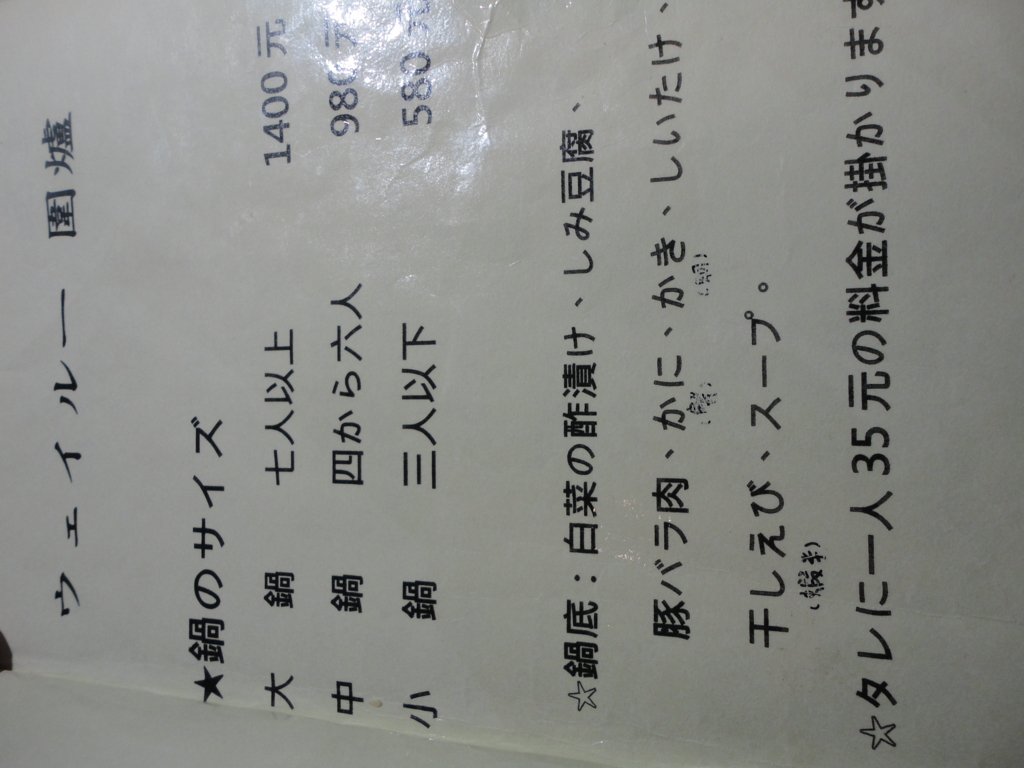 ウェイルー 圍爐
★鍋のサイズ
大 鍋 七人以上 1400元
中 鍋 四から六人 980元
小 鍋 三人以下 580元
☆鍋底：白菜の酢漬け、しみ豆腐、
豚バラ肉、かに、かき、しいたけ、
(蟹) (蚵)
干しえび、スープ。
(蝦米)
☆タレに一人35元の料金が掛かります